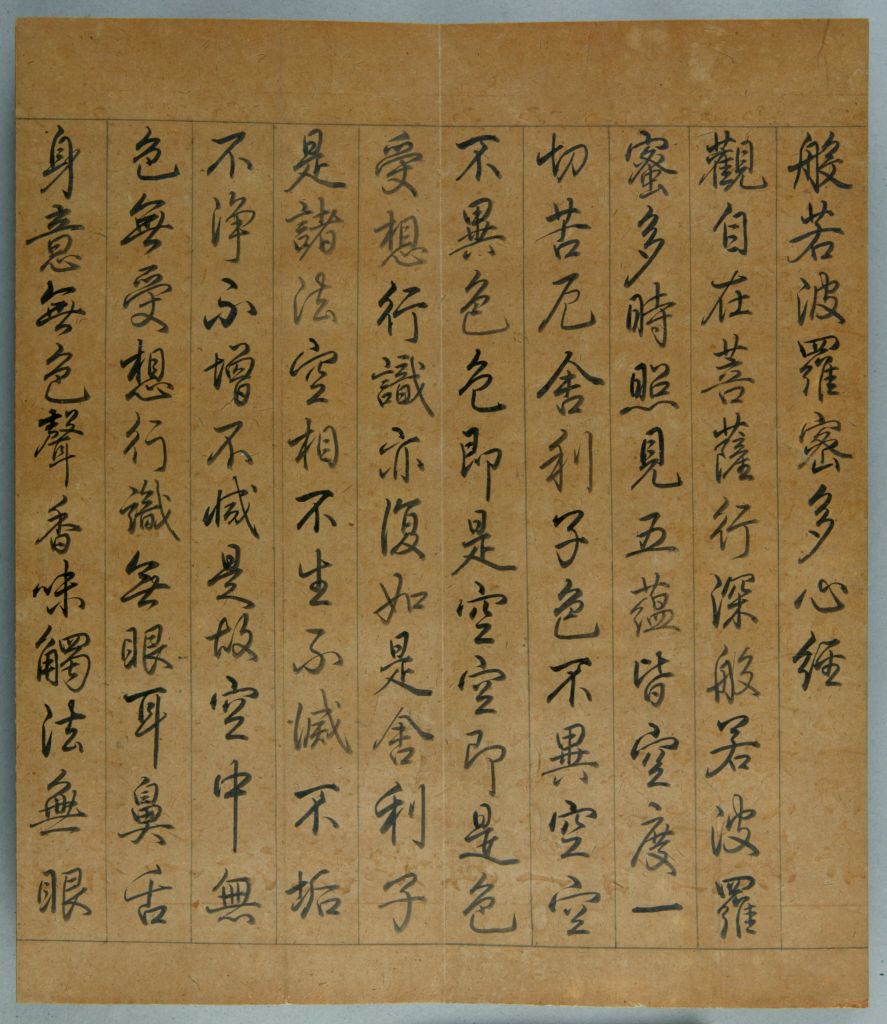 般若波羅密多心經
觀自在菩薩行深般若波羅
蜜多時照見五蘊皆空度一
切苦厄舍利子色不異空空
不異色色即是空空即是色
受想行識亦復如是舍利子
是諸法空相不生不滅不垢
不淨不增不減是故空中無
色無受想行識無眼耳鼻舌
身意無色聲香味觸法無眼